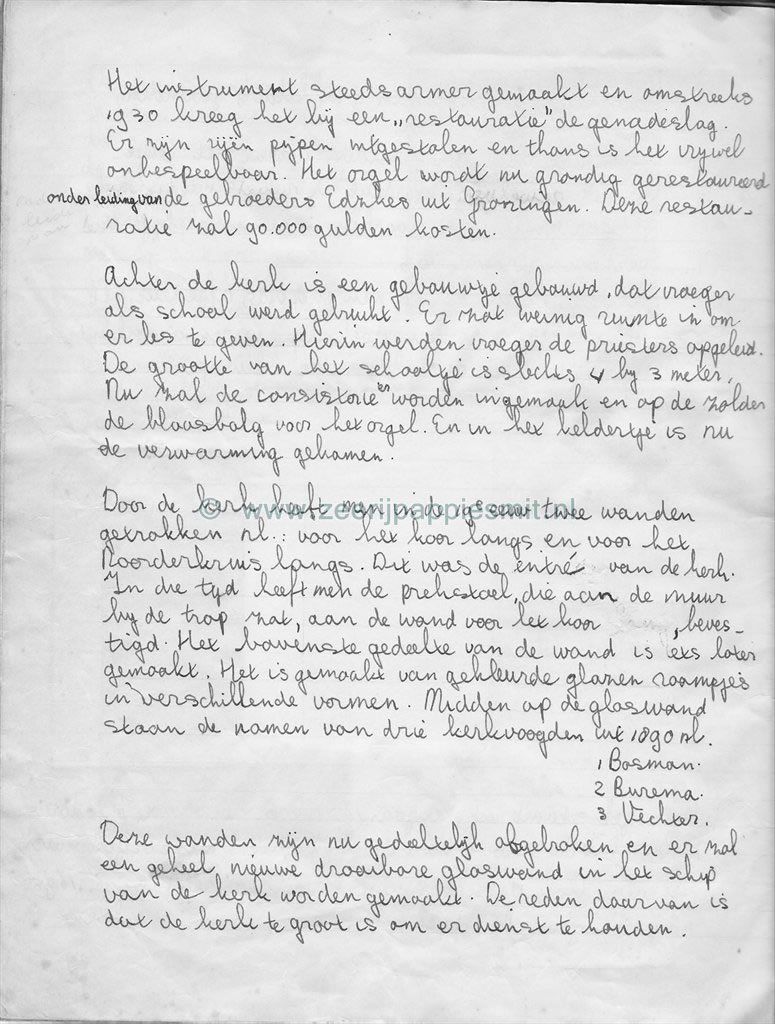 Het instrument steeds armer gemaakt en omstreeks
1930 kreeg het bij een „restauratie" de genadeslag.
Er zijn rijën pijpen uitgestolen en thans is het vrijwel
onbespeelbaar. Het orgel wordt nu grondig gerestaureerd
onder leiding van de gebroeders Edskes uit Groningen. Deze restau-
ratie zal 90.000 gulden kosten.
Achter de kerk is een gebouwtje gebouwd, dat vroeger
als school werd gebruikt. Er zat weinig ruimte in om
er les te geven. Hierin werden vroeger de priesters opgeleid.
De grootte van het schooltje is slechts 4 bij 3 meter.
Nu zal de consistorie er worden ingemaak en op de zolder
de blaasbalg voor het orgel. En in het keldertje is nu
de verwarming gekomen.
Door de kerk heeft men in de eeuw twee wanden
getrokken nl.: voor het koor langs en voor het
Noorderkruis langs. Dit was de entré van de kerk.
In die tijd heeft men de prekstoel, die aan de muur
bij de trap zat, aan de wand voor het koor , beves-
tigd. Het bovenste gedeelte van de wand is iets later
gemaakt. Het is gemaakt van gekleurde glazen raampjes
in verschillende vormen. Midden op de glaswand
staan de namen van drie kerkvoogden uit 1890 nl.
1 Bosman.
2 Burema.
3 Vechter.
Deze wanden zijn nu gedeeltelijk afgebroken en er zal
een geheel nieuwe draaibare glaswand in het schip
van de kerk worden gemaakt. De reden daarvan is
dat de kerk te groot is om er dienst te houden.
© www.zeerijpappiesmit.nl